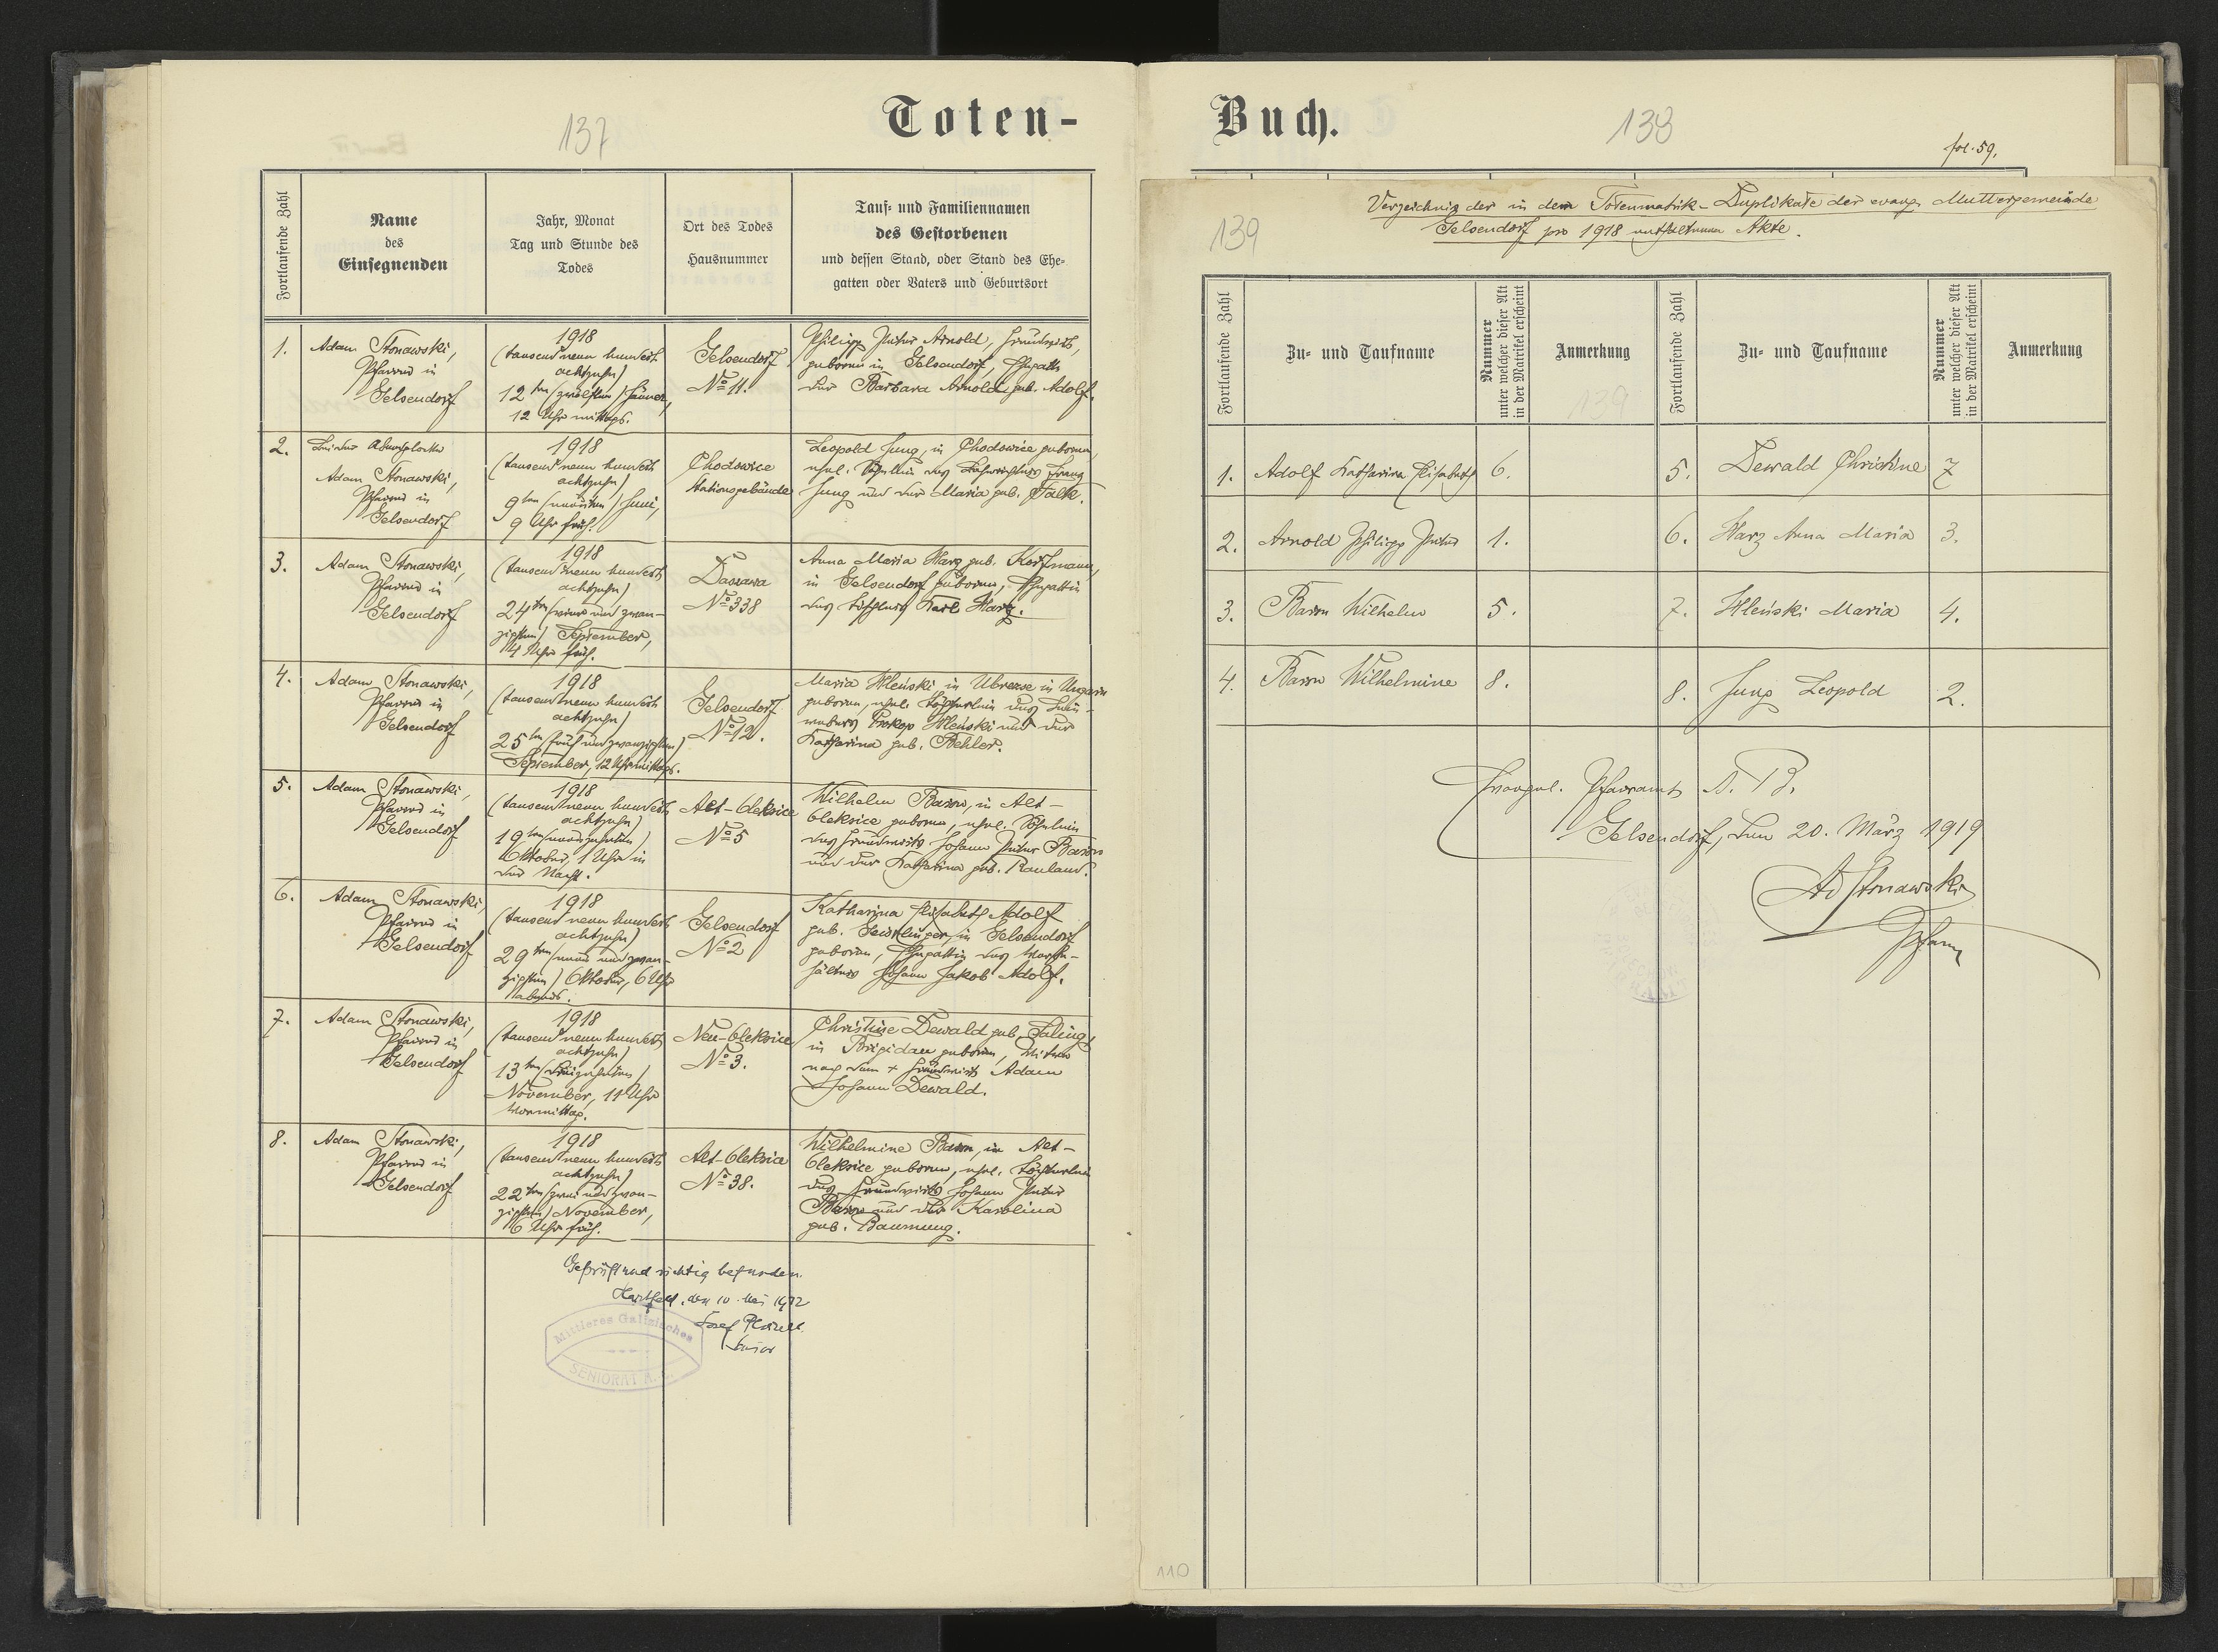 Toten-
137
Fortlaufende Zahl
Name
des
Einsegnenden
Jahr, Monat
Tag und Stunde des
Todes
Ort des Todes
Hausnummer
Tauf- und Familiennamen
des Gestorbenen
und dessen Stand, oder Stand des Ehe-
gatten oder Vaters und Geburtsort
1.
Adam Stonawski,
Pfarrer in
Gelsendorf
1918
(tausend neun hundert
achtzehn)
12ten (zwölften) Jänner,
12 Uhr mittags.
Gelsendorf
No 11.
Philipp Peter Arnold, Grundwirth,
geboren in Gelsendorf, Ehegatte
der Barbara Arnold geb. Adolf.
2.
Adam Stonawski,
Pfarrer in
Gelsendorf
1918
(tausend neun hundert
achtzehn)
9ten (neunten) Juni,
9 Uhr früh.
Chodowice
Stationsgebäude
Leopold Jung, in Chodowice geboren,
ehel. Söhnlein des Franz
Jung und der Maria geb. Falk.
3.
Adam Stonawski,
Pfarrer in
Gelsendorf
1918
(tausend neun hundert
achtzehn)
24ten (vier und zwan-
zigsten) September,
4 Uhr früh.
Daszawa
No 338
Anna Maria Harz geb. Korfmann,
in Gelsendorf geboren, Ehegattin
des Tischlers Karl Harz.
4.
Adam Stonawski,
Pfarrer in
Gelsendorf
1918
(tausend neun hundert
achtzehn)
25ten (fünf und zwanzigsten)
September, 12 Uhr mittags.
Gelsendorf
No 12.
Maria Hleński in Ubrezse in Ungarn
geboren, ehel. Töchterlein des Lein-
webers Prokop Hleński und der
Katharina geb. Behler.
5.
Adam Stonawski,
Pfarrer in
Gelsendorf
1918
(tausend neun hundert
achtzehn)
19ten (neunzehnten)
Oktober, 1 Uhr in
der Nacht.
Alt-Oleksice
No 5
Wilhelm Baron, in Alt-
Oleksice geboren, ehel. Söhnlein
des Grundwirts Johann Peter Baron
und der Katharina geb. Rauland.
6.
Adam Stonawski,
Pfarrer in
Gelsendorf
1918
(tausend neun hundert
achtzehn)
29ten (neun und zwan-
zigsten) Oktober, 6 Uhr
abends.
Gelsendorf
No 2
Katharina Elisabeth Adolf
geb. in Gelsendorf
geboren, Ehegattin des
Johann Jakob Adolf.
7.
Adam Stonawski,
Pfarrer in
Gelsendorf
1918
(tausend neun hundert
achtzehn)
13ten (dreizehnten)
November, 11 Uhr
Vormittag.
Neu-Oleksice
No 3.
Christine Dewald geb. Saling,
in Brigidau geboren, Witwe
nach dem + Grundwirt Adam
Johann Dewald.
8.
Adam Stonawski,
Pfarrer in
Gelsendorf
1918
(tausend neun hundert
achtzehn)
22ten (zwei und zwan-
zigsten) November,
6 Uhr früh.
Alt-Oleksice
No 38.
Wilhelmine Baron, in Alt-
Oleksice geboren, ehel. Töchterlein
des Grundwirts Johann Peter
Baron und der Karolina
geb. Baumung.
Geprüft und richtig befunden.
Hartfeld, den 10. Mai 1922
Senior
Mittleres Galizisches
SENIORAT A. B.
Buch.
138
fol. 59.
139
Verzeichnis der in dem Totenmatrik-Duplikate der evang. Muttergemeinde
Gelsendorf pro 1918 enthaltenen Akte.
Fortlaufende Zahl
Zu- und Taufname
Nummer
unter welcher dieser Akt
in der Matrikel erscheint
Anmerkung
139
Fortlaufende Zahl
Zu- und Taufname
Nummer
unter welcher dieser Akt
in der Matrikel erscheint
Anmerkung
1. Adolf Katharina Elisabeth 6.
5. Dewald Christine 7
2. Arnold Philipp Peter 1.
6. Harz Anna Maria 3.
3. Baron Wilhelm 5.
7. Hleński Maria 4.
4. Baron Wilhelmine 8.
8. Jung Leopold 2.
Evangel. Pfarramt A. B.
Gelsendorf, den 20. März 1919
Ad Stonawski
Pfarrer
110